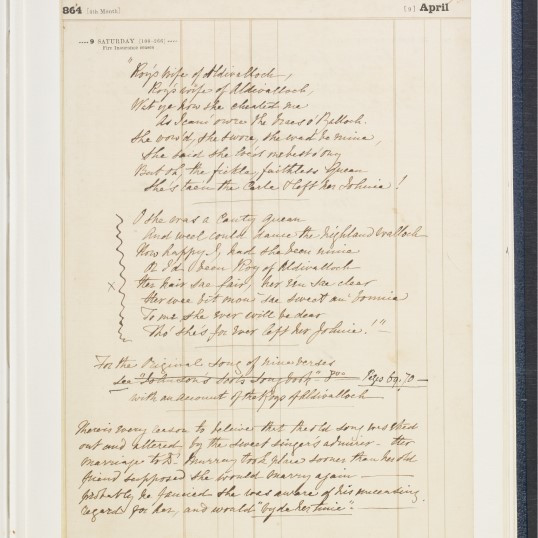 864 [4th Month] [9] April
9 SATURDAY [100-266]
Fire Insurance ceases
"Roy's Wife of Aldivalloch,
Roy's wife of Aldivalloch,
Wat ye how she cheated me
As I cam' o'er the Braes o' Balloch.
She vow'd, she swore, she wad be mine,
She said she lo'ed me best o' ony
But oh, the fickle, faithless Quean
She's ta'en the Carle & left her Johnie!
O she was a canty quean
And weel could dance the highland walloch
How happy I, had she been mine
Or I'd been Roy of Aldivalloch
Her hair sae fair, her e'en sae clear
Her wee bit mou' sae sweet an' bonnie
To me she ever will be dear
Tho' she's for ever left her Johnie!"
x
For the Original Song of nine verses
see songbook" Page 69.70
with an account of the Roys of Aldivalloch
There is every reason to believe that the old song was
out and altered by the sweet singer's admirer - Her
marriage to Dr Murray took place sooner than her old
friend supposed she would marry again
probably he fancied she was aware of his unceasing
regard for her, and would "byde her time".